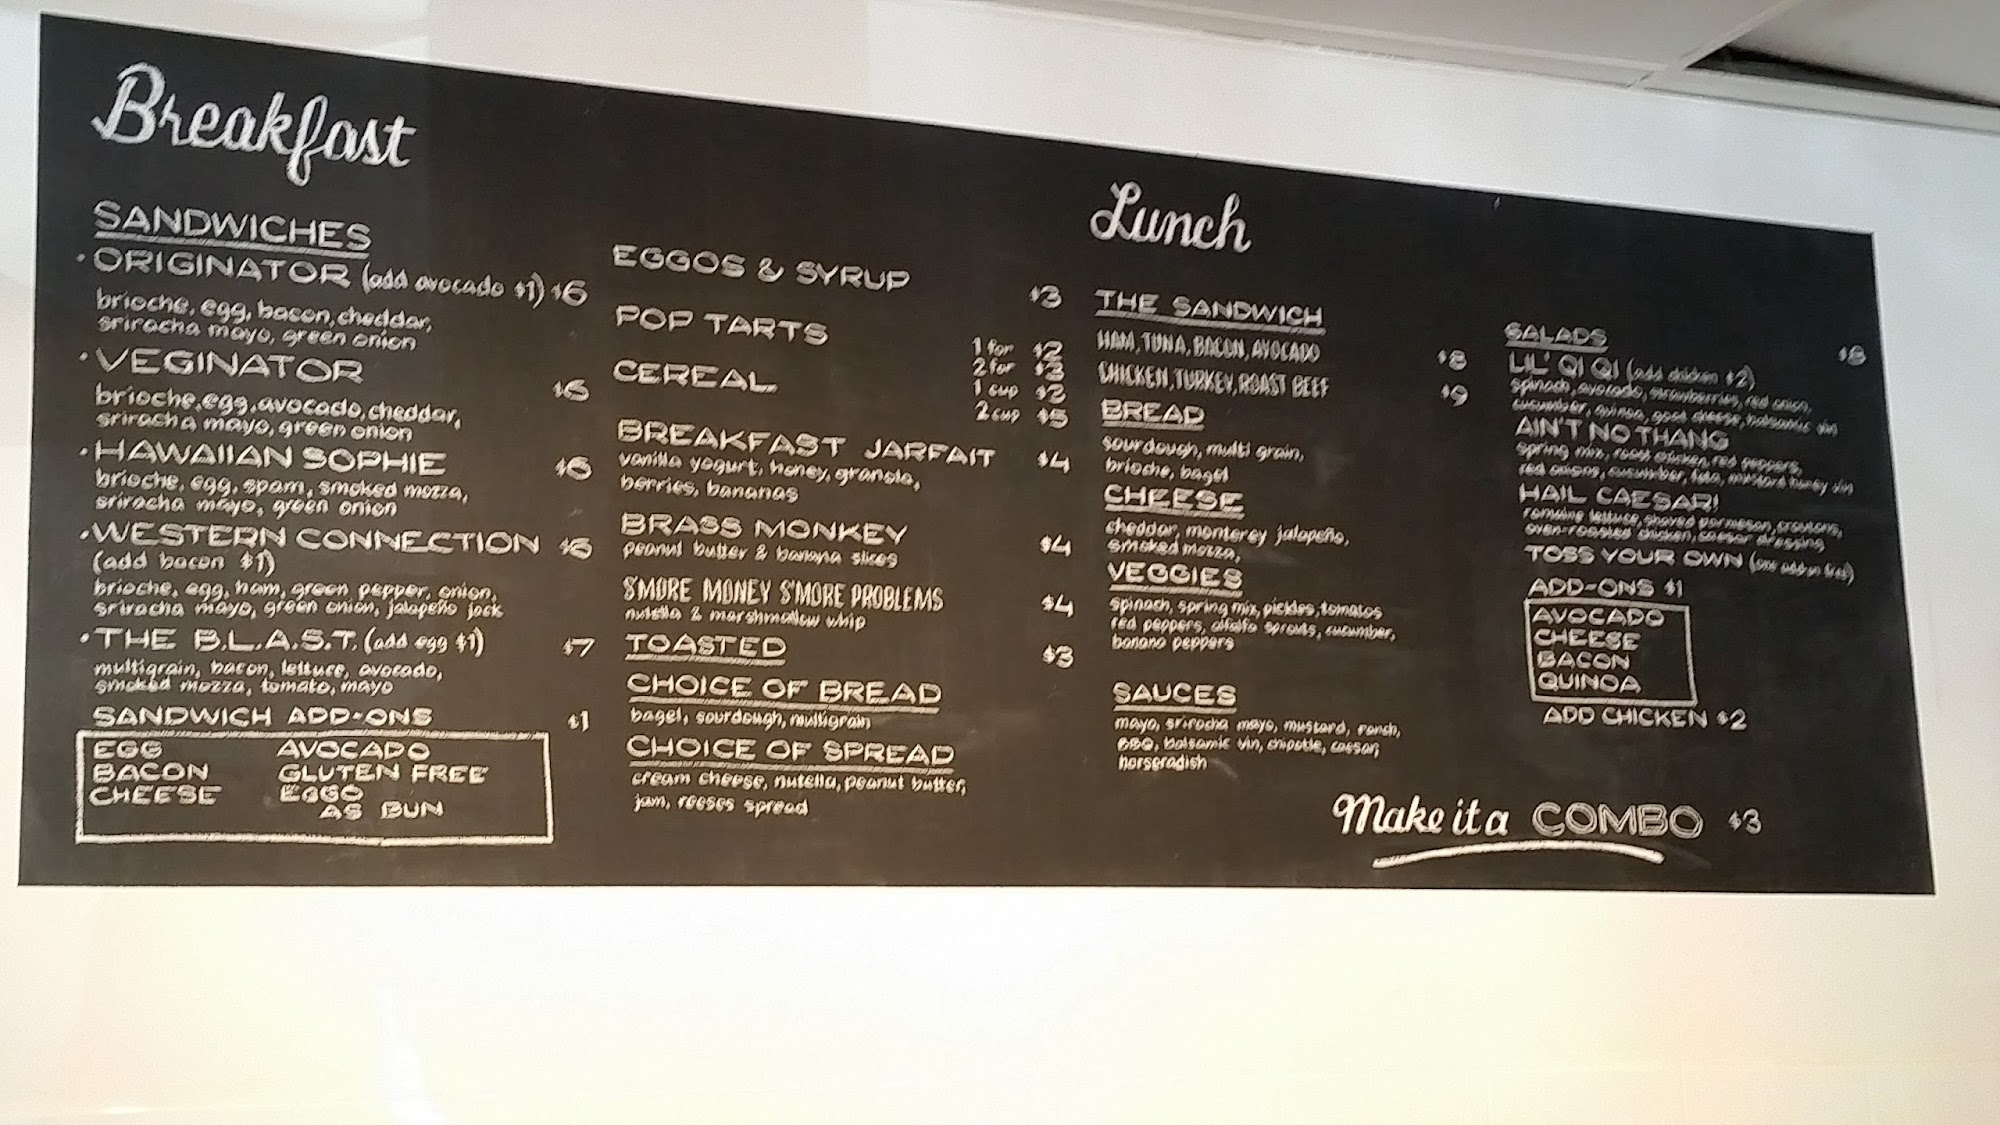 Breakfast
SANDWICHES
·ORIGINATOR (add avocado $1) $6
brioche, egg, bacon, cheddar,
sriracha mayo, green onion
·VEGINATOR $6
brioche, egg, avocado, cheddar,
sriracha mayo, green onion
·HAWAIIAN SOPHIE $6
brioche, egg, spam, smoked mozza,
sriracha mayo, green onion
·WESTERN CONNECTION $6
(add bacon $1)
brioche, egg, ham, green pepper, onion,
sriracha mayo, green onion, jalapeño jack
·THE B.L.A.S.T. (add egg $1) $7
multigrain, bacon, lettuce, avocado,
smoked mozza, tomato, mayo
SANDWICH ADD-ONS $1
EGG AVOCADO
BACON GLUTEN FREE
CHEESE EGGO
AS BUN
EGGOS & SYRUP $3
POP TARTS 1 for $2
2 for $3
CEREAL 1 cup $3
2 cup $5
BREAKFAST JARFAIT $4
vanilla yogurt, honey, granola,
berries, bananas
BRASS MONKEY $4
peanut butter & banana slices
S'MORE MONEY S'MORE PROBLEMS $4
nutella & marshmallow whip
TOASTED $3
CHOICE OF BREAD
bagel, sourdough, multigrain
CHOICE OF SPREAD
cream cheese, nutella, peanut butter,
jam, reeses spread
Lunch
THE SANDWICH
HAM, TUNA, BACON, AVOCADO $8
CHICKEN, TURKEY, ROAST BEEF $9
BREAD
sourdough, multi grain,
brioche, bagel
CHEESE
cheddar, monterey jalapeño,
smoked mozza,
VEGGIES
spinach, spring mix, pickles, tomatos
red peppers, alfalfa sprouts, cucumber,
banana peppers
SAUCES
mayo, sriracha mayo, mustard, ranch,
BBQ, balsamic vin, chipotle, caesar,
horseradish
SALADS $8
LIL' QI QI (add chicken $2)
spinach, avocado, strawberries, red onion,
cucumber, quinoa, goat cheese, balsamic vin
AIN'T NO THANG
spring mix, roast chicken, red peppers,
red onions, cucumber, feta, mustard honey vin
HAIL CAESAR!
romaine lettuce, shaved parmesan, croutons,
oven-roasted chicken, caesar dressing
TOSS YOUR OWN (one add-on free)
ADD-ONS $1
AVOCADO
CHEESE
BACON
QUINOA
ADD CHICKEN $2
Make it a COMBO $3